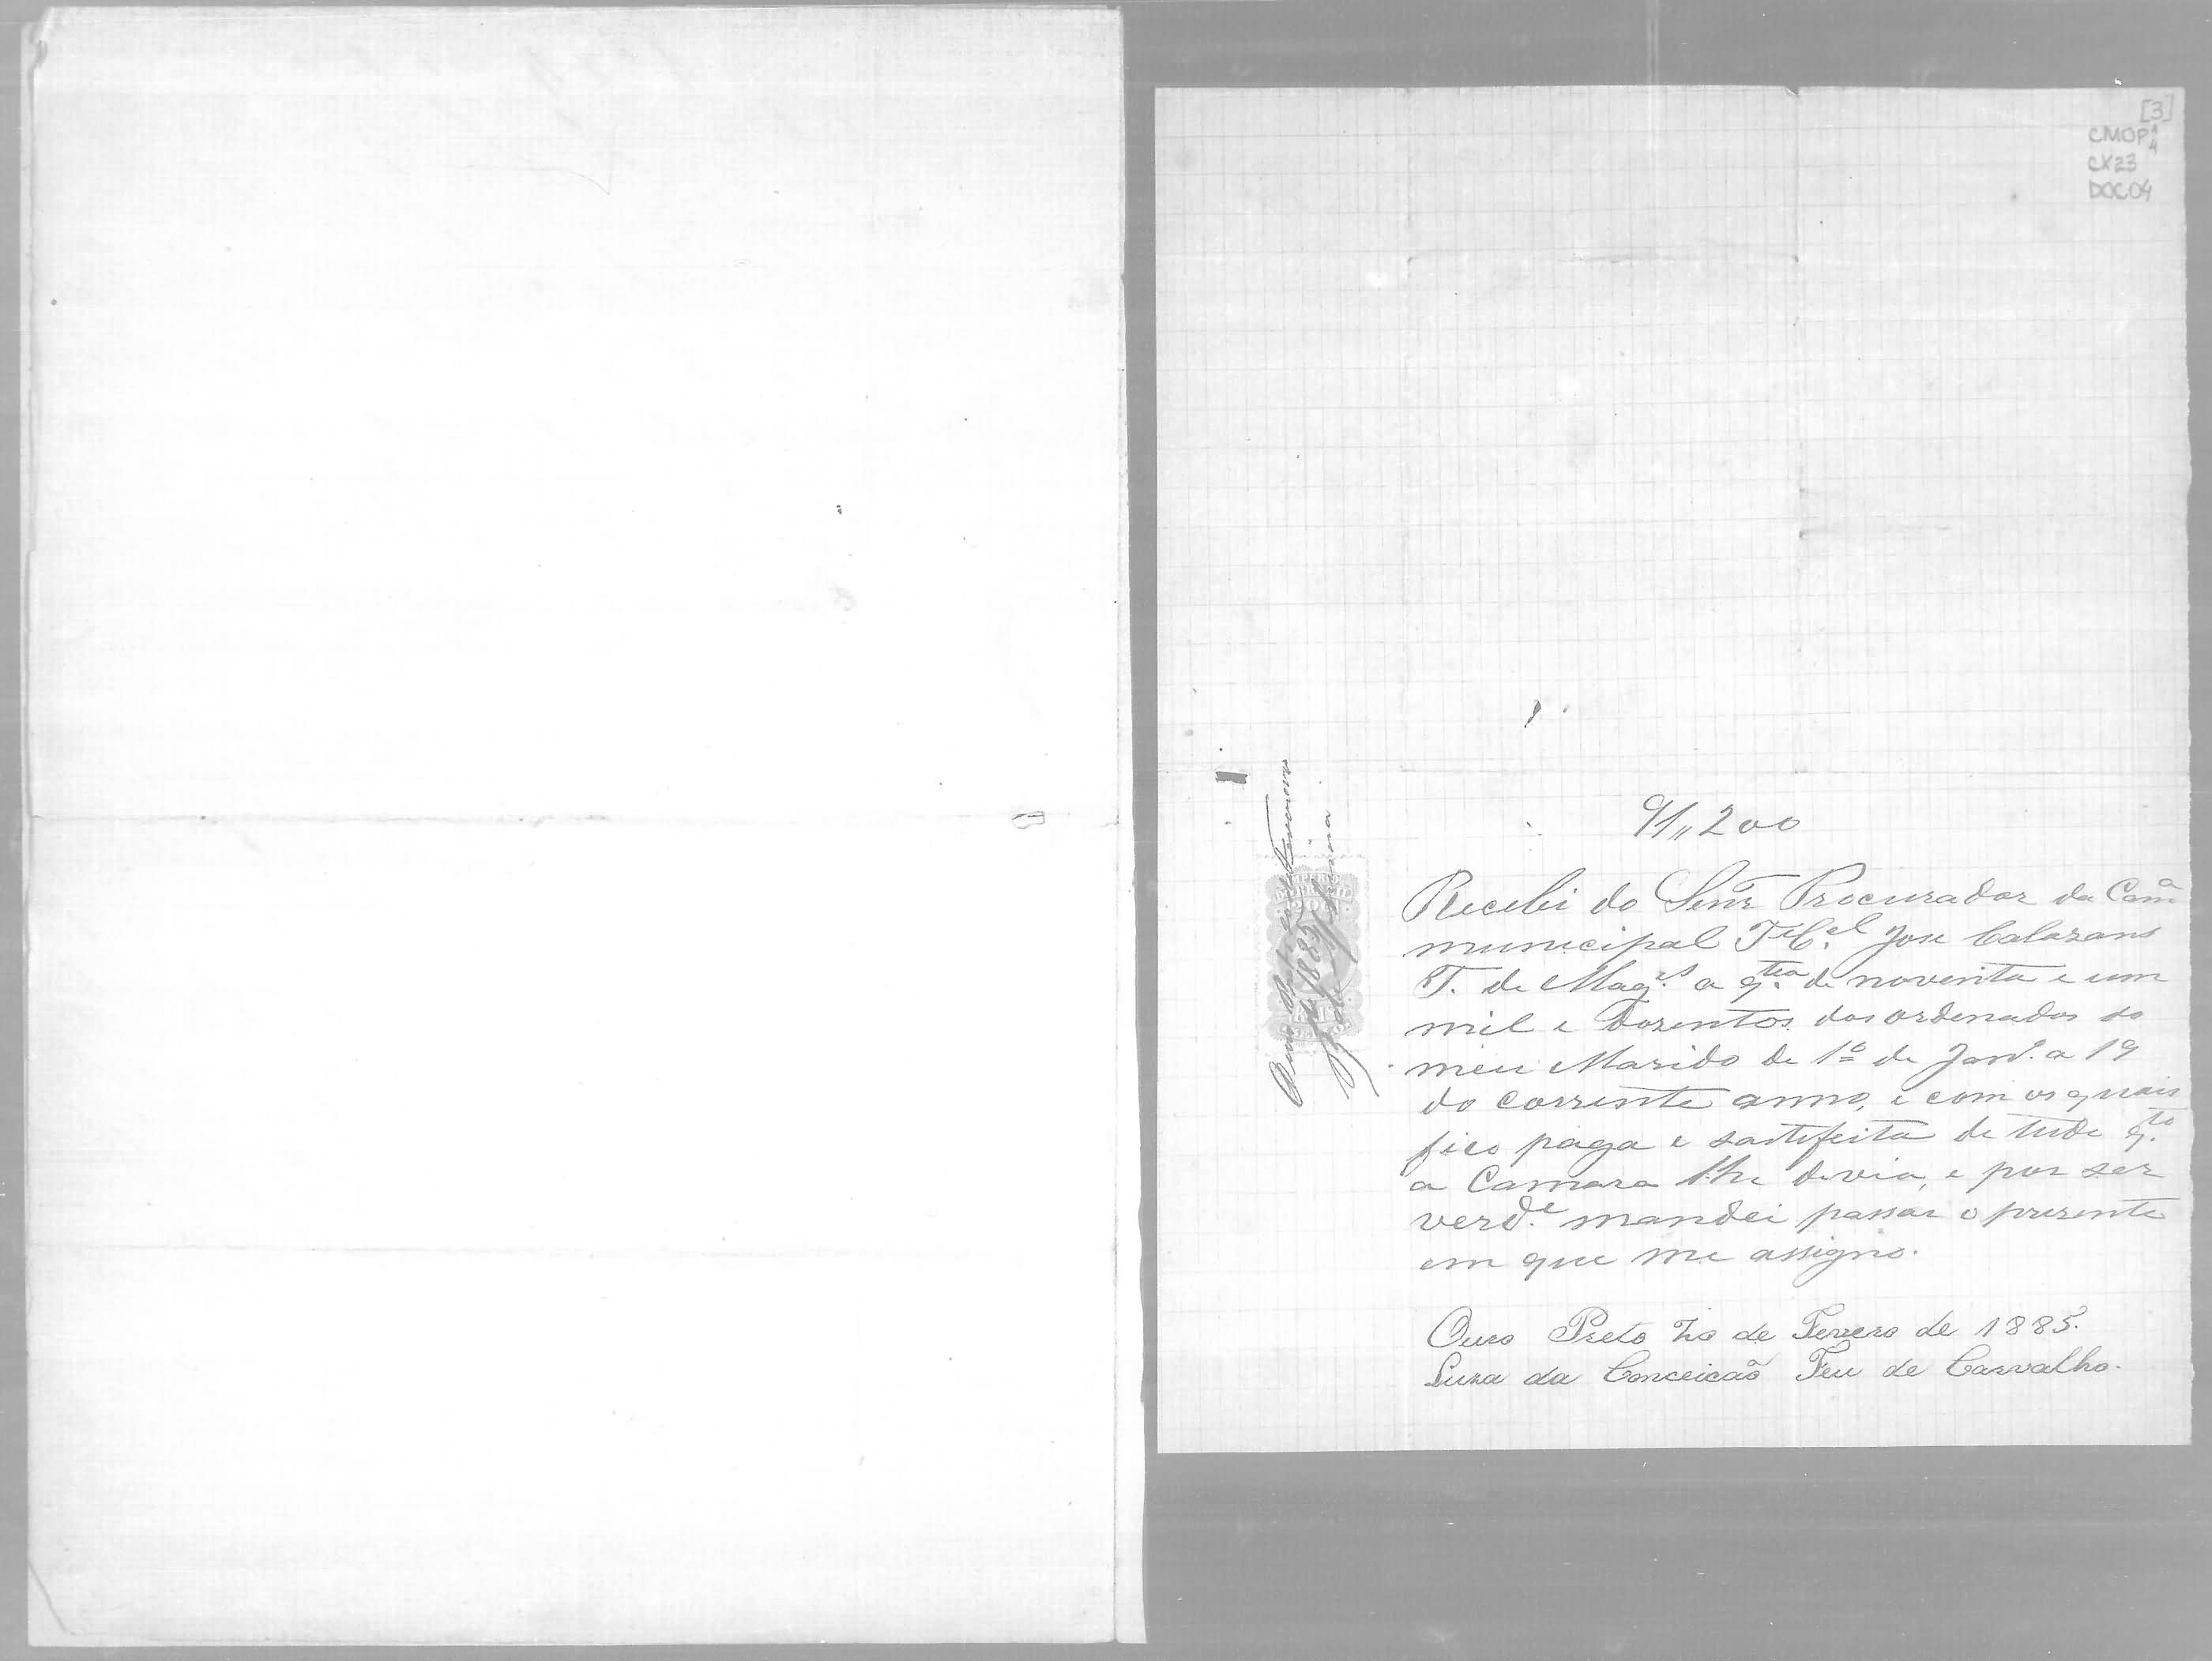 [3]
CMOP
CX23
DOC04
91,,200
Recebi do Senr. Procurador da Camª
municipal Te. Cel. Jose Calazans
T. de Mag.es a q.tia de noventa e um
mil e dozentos dos ordenados do
meu Marido de 1º de Janº. a 19
do corrente anno, e com os quais
fico paga e sastifeita de tudo q.to
a Camara lhe devia, e por ser
verd.e mandei passar o presente
em que me assigno.
Ouro Preto de Fevrero de 1885.
Luza da Conceicão Feu de Carvalho.
IMPERIO
Ouro Preto
de 1885